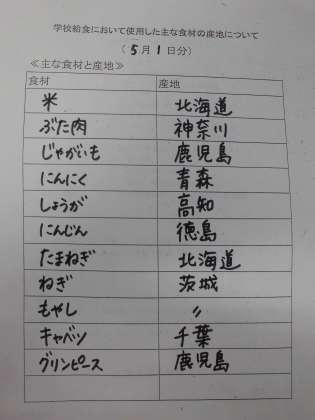 学校給食において使用した主な食材の産地について
（5月1日分）
≪主な食材と産地≫
食材 産地
米 北海道
ぶた肉 神奈川
じゃがいも 鹿児島
にんにく 青森
しょうが 高知
にんじん 徳島
たまねぎ 北海道
ねぎ 茨城
もやし 〃
キャベツ 千葉
グリンピース 鹿児島